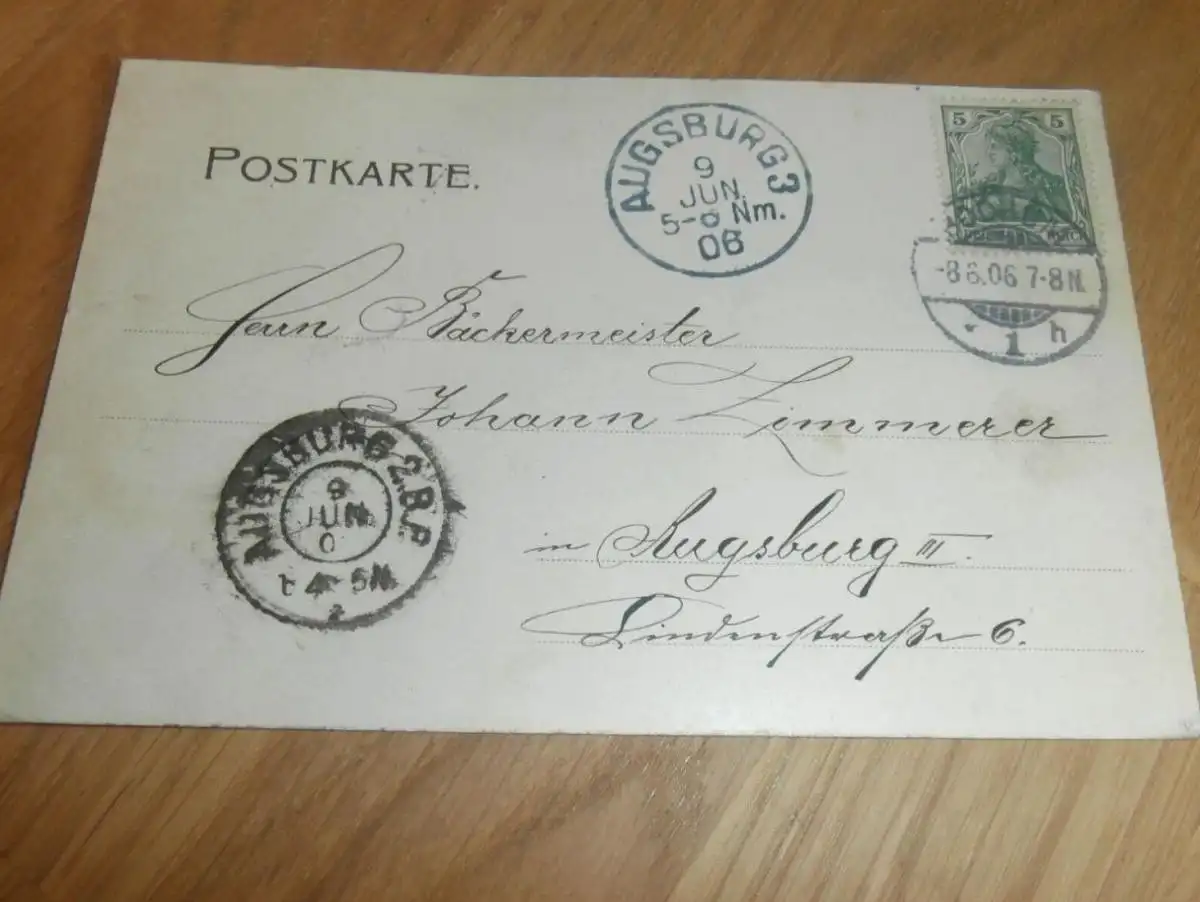 POSTKARTE.
AUGSBURG 3
9
JUN.
5-6 Nm.
06
5 5
REICH
-8.6.06 7-8 N.
* 1 h
Herrn Bäckermeister
Johann Zimmerer
in Augsburg III.
Lindenstraße 6.
AUGSBURG 2. B.P.
9
JUN.
0
4-5 N.